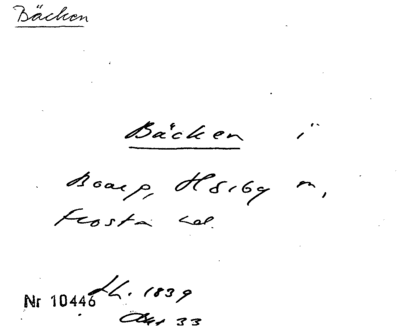 Bäcken
Bäcken i
Boarp, Hörby m,
Frosta hd.
Nr 10446 1839
Akt 33